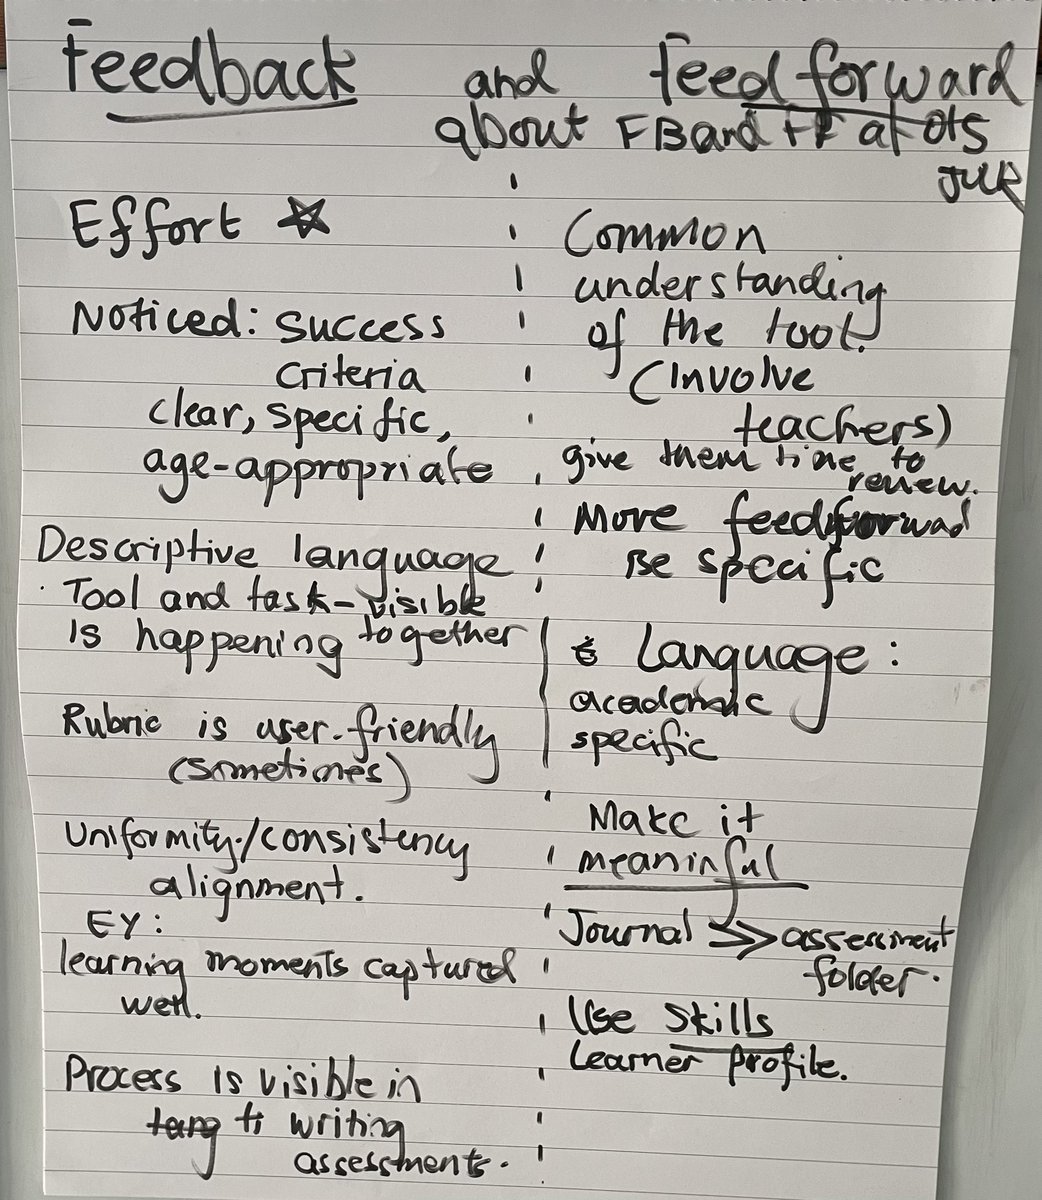 Feedback and Feed forward
about FB and FF at OIS
JUR
Effort
Noticed: success
criteria
clear, specific,
age-appropriate
Descriptive language
Tool and task-visible
is happening together
Rubric is user-friendly
(sometimes)
Uniformity/consistency
alignment.
EY:
learning moments captured
well.
Process is visible in
writing
assessments.
Common
understanding
of the tool.
(Involve
teachers)
give them time to
review.
More feedforward
Be specific
Language:
academic
specific
Make it
meaninful
Journal >> assessment
folder.
Use Skills
Learner profile.